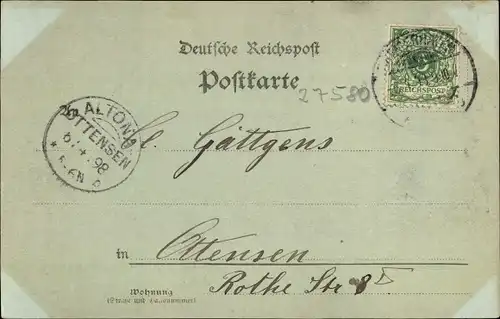 Deutsche Reichspost
Postkarte
REICHSPOST
27580
ALTONA
OTTENSEN
6/4.98
Gättgens
in Ottensen
Rothe Str 8
Wohnung
(Straße und Hausnummer)